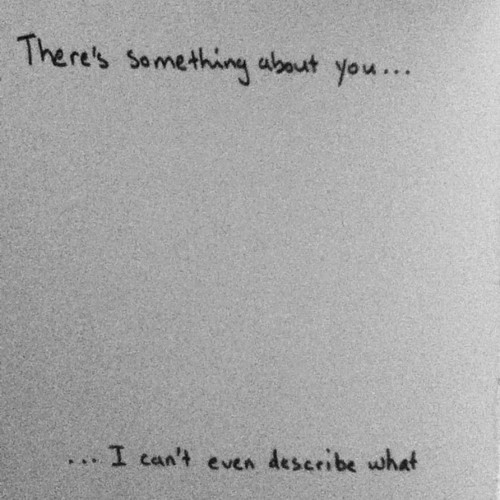 There's something about you...
... I can't even describe what